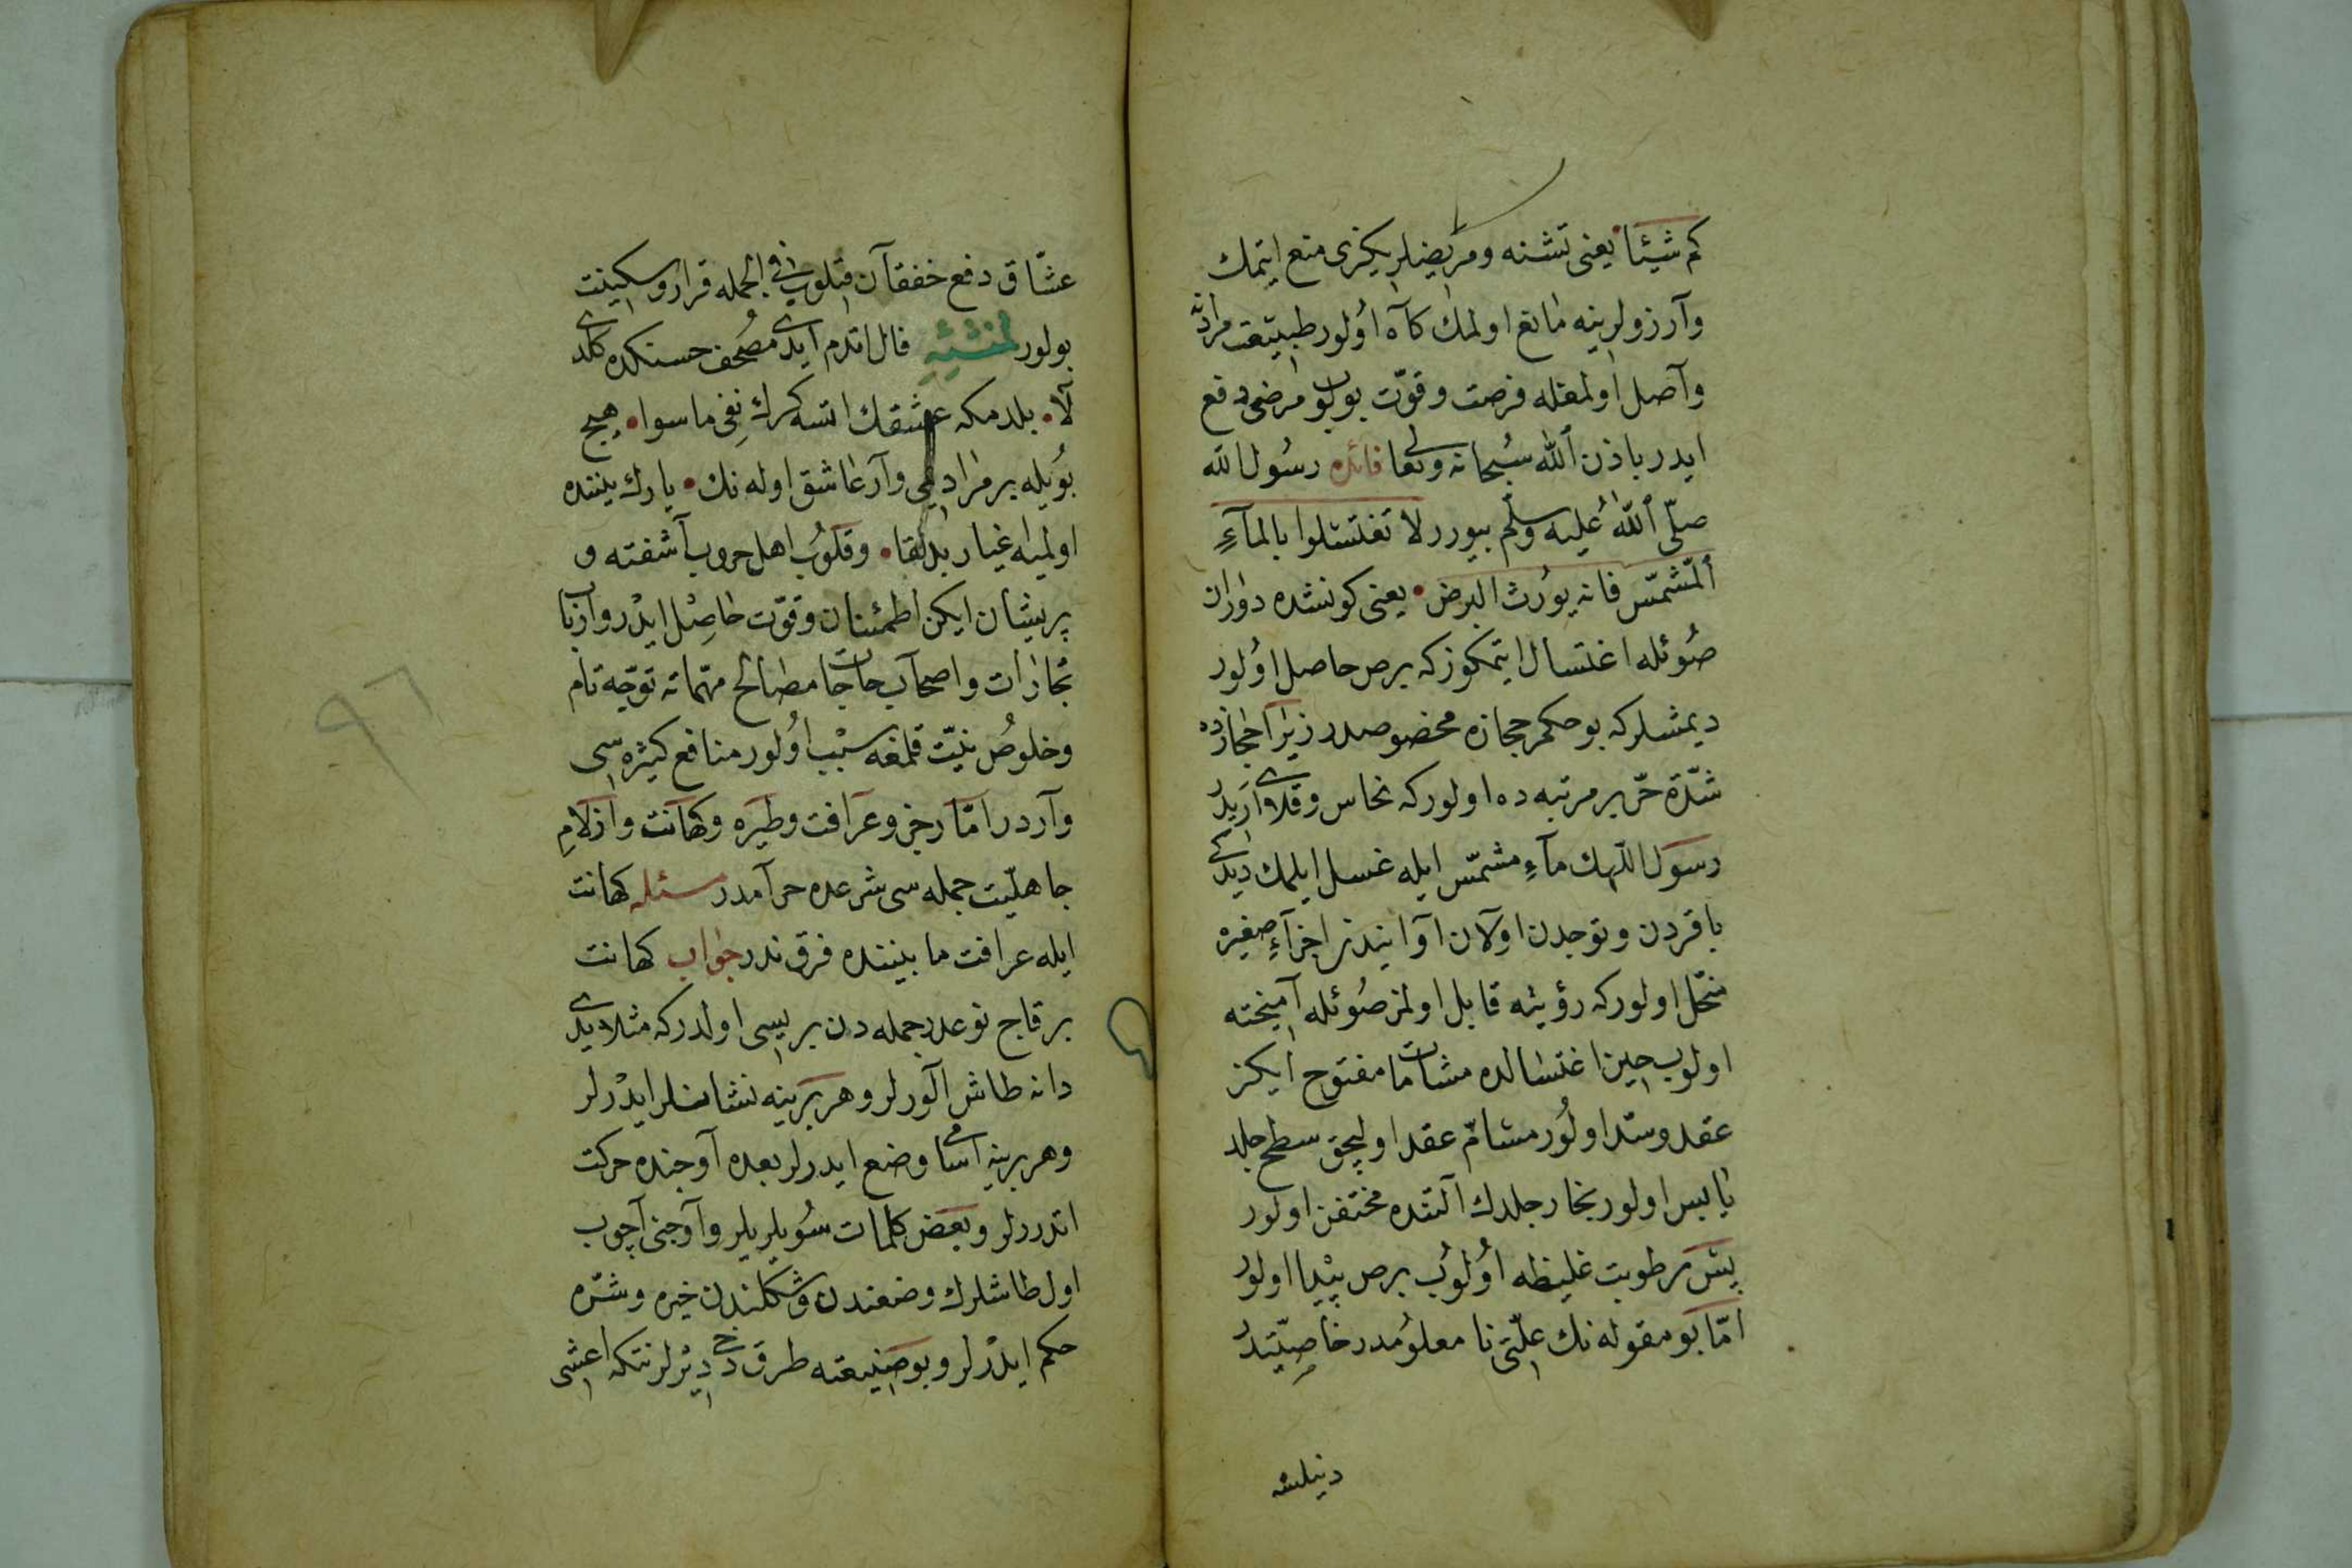 كم شيئا يعنى تشنه و مريضلريكزى منع ايتمك
وآرزولرينه مانع اولمك كآه اولور طبيعت مرادنه
وآصل اولمغله فرصت وقوّت بولوب مرضى دفع
ايدر باذن الله سبحانه وتعالى فائده رسول الله
صلّى الله عليه وسلّم بيورر لا تغتسلوا بالمآءِ
المشمّس فانه يورث البرص يعنى كونشده دوران
صوئله اغتسال ايتمكوز كه برص حاصل اولور
ديمشلر كه بو حكم حجازه مخصوصدر زيرا حجازده
شدّة حرّ بر مرتبه ده اولور كه نحاس وقلاى اريدر
رسول اللهك مآءِ مشمّس ايله غسل ايلمك ديدكى
باقردن وتوجدن اولآن آوانيدن اجزآءِ صغيره
منحّل اولور كه رؤيته قابل اولمز صوئله آميخته
اولوب حين اغتسالده مشامات مفتوح ايكن
عقد وسدّ اولور مشامّ عقد اوليجق سطح جلد
يابس اولور بخار جلدك آلتنده مختفن اولور
پس رطوبت غليظه اولوب برص پيدا اولور
امّا بو مقوله نك علّتى نامعلومدر خاصيّتدر
دنيلسه
عشّاق دفع خفقآن قلوب ايدر فى الجمله قرار وسكينت
بولور لمنشئه فال اتدم ايدى مصحف حسنكده كلدى
لآ بلدمكه عشقك اتسه كرك نفى ماسوا هيچ
بويله بر مرادمى وآر عاشق اوله نك يارك يننده
اولميه اغيار بدلقا وقلوب اهل حروب آشفته و
پريشان ايكن اطمئنان وقوّت حاصل ايدر وارباب
تجارات واصحآب حاجات مصالح مهمّاته توجّه تام
وخلوص نيّت قلمغه سبب اولور منافع كثيره سى
وآردر امّا رجز وعرافت وطيره وكهانت وازلامِ
جاهليّت جمله سى شرعده حرآمدر مسئله كهانت
ايله عرافت مابيننده فرق ندر جواب كهانت
بر قاچ نوعدر جمله دن بريسى اولدر كه مثلا يدى
دانه طاش آلورلر وهر برينه نشانلر ايدرلر
وهر برينه اسامى وضع ايدرلر بعده آوجنده حركت
اتدررلر وبعض كلمات سويلريلر وآوجنى آچوب
اول طاشلرك وضعندن وشكلندن خيره وشرّه
حكم ايدرلر وبو صنيعته طرق دخى ديرلر نتكه اعشى
٩٦